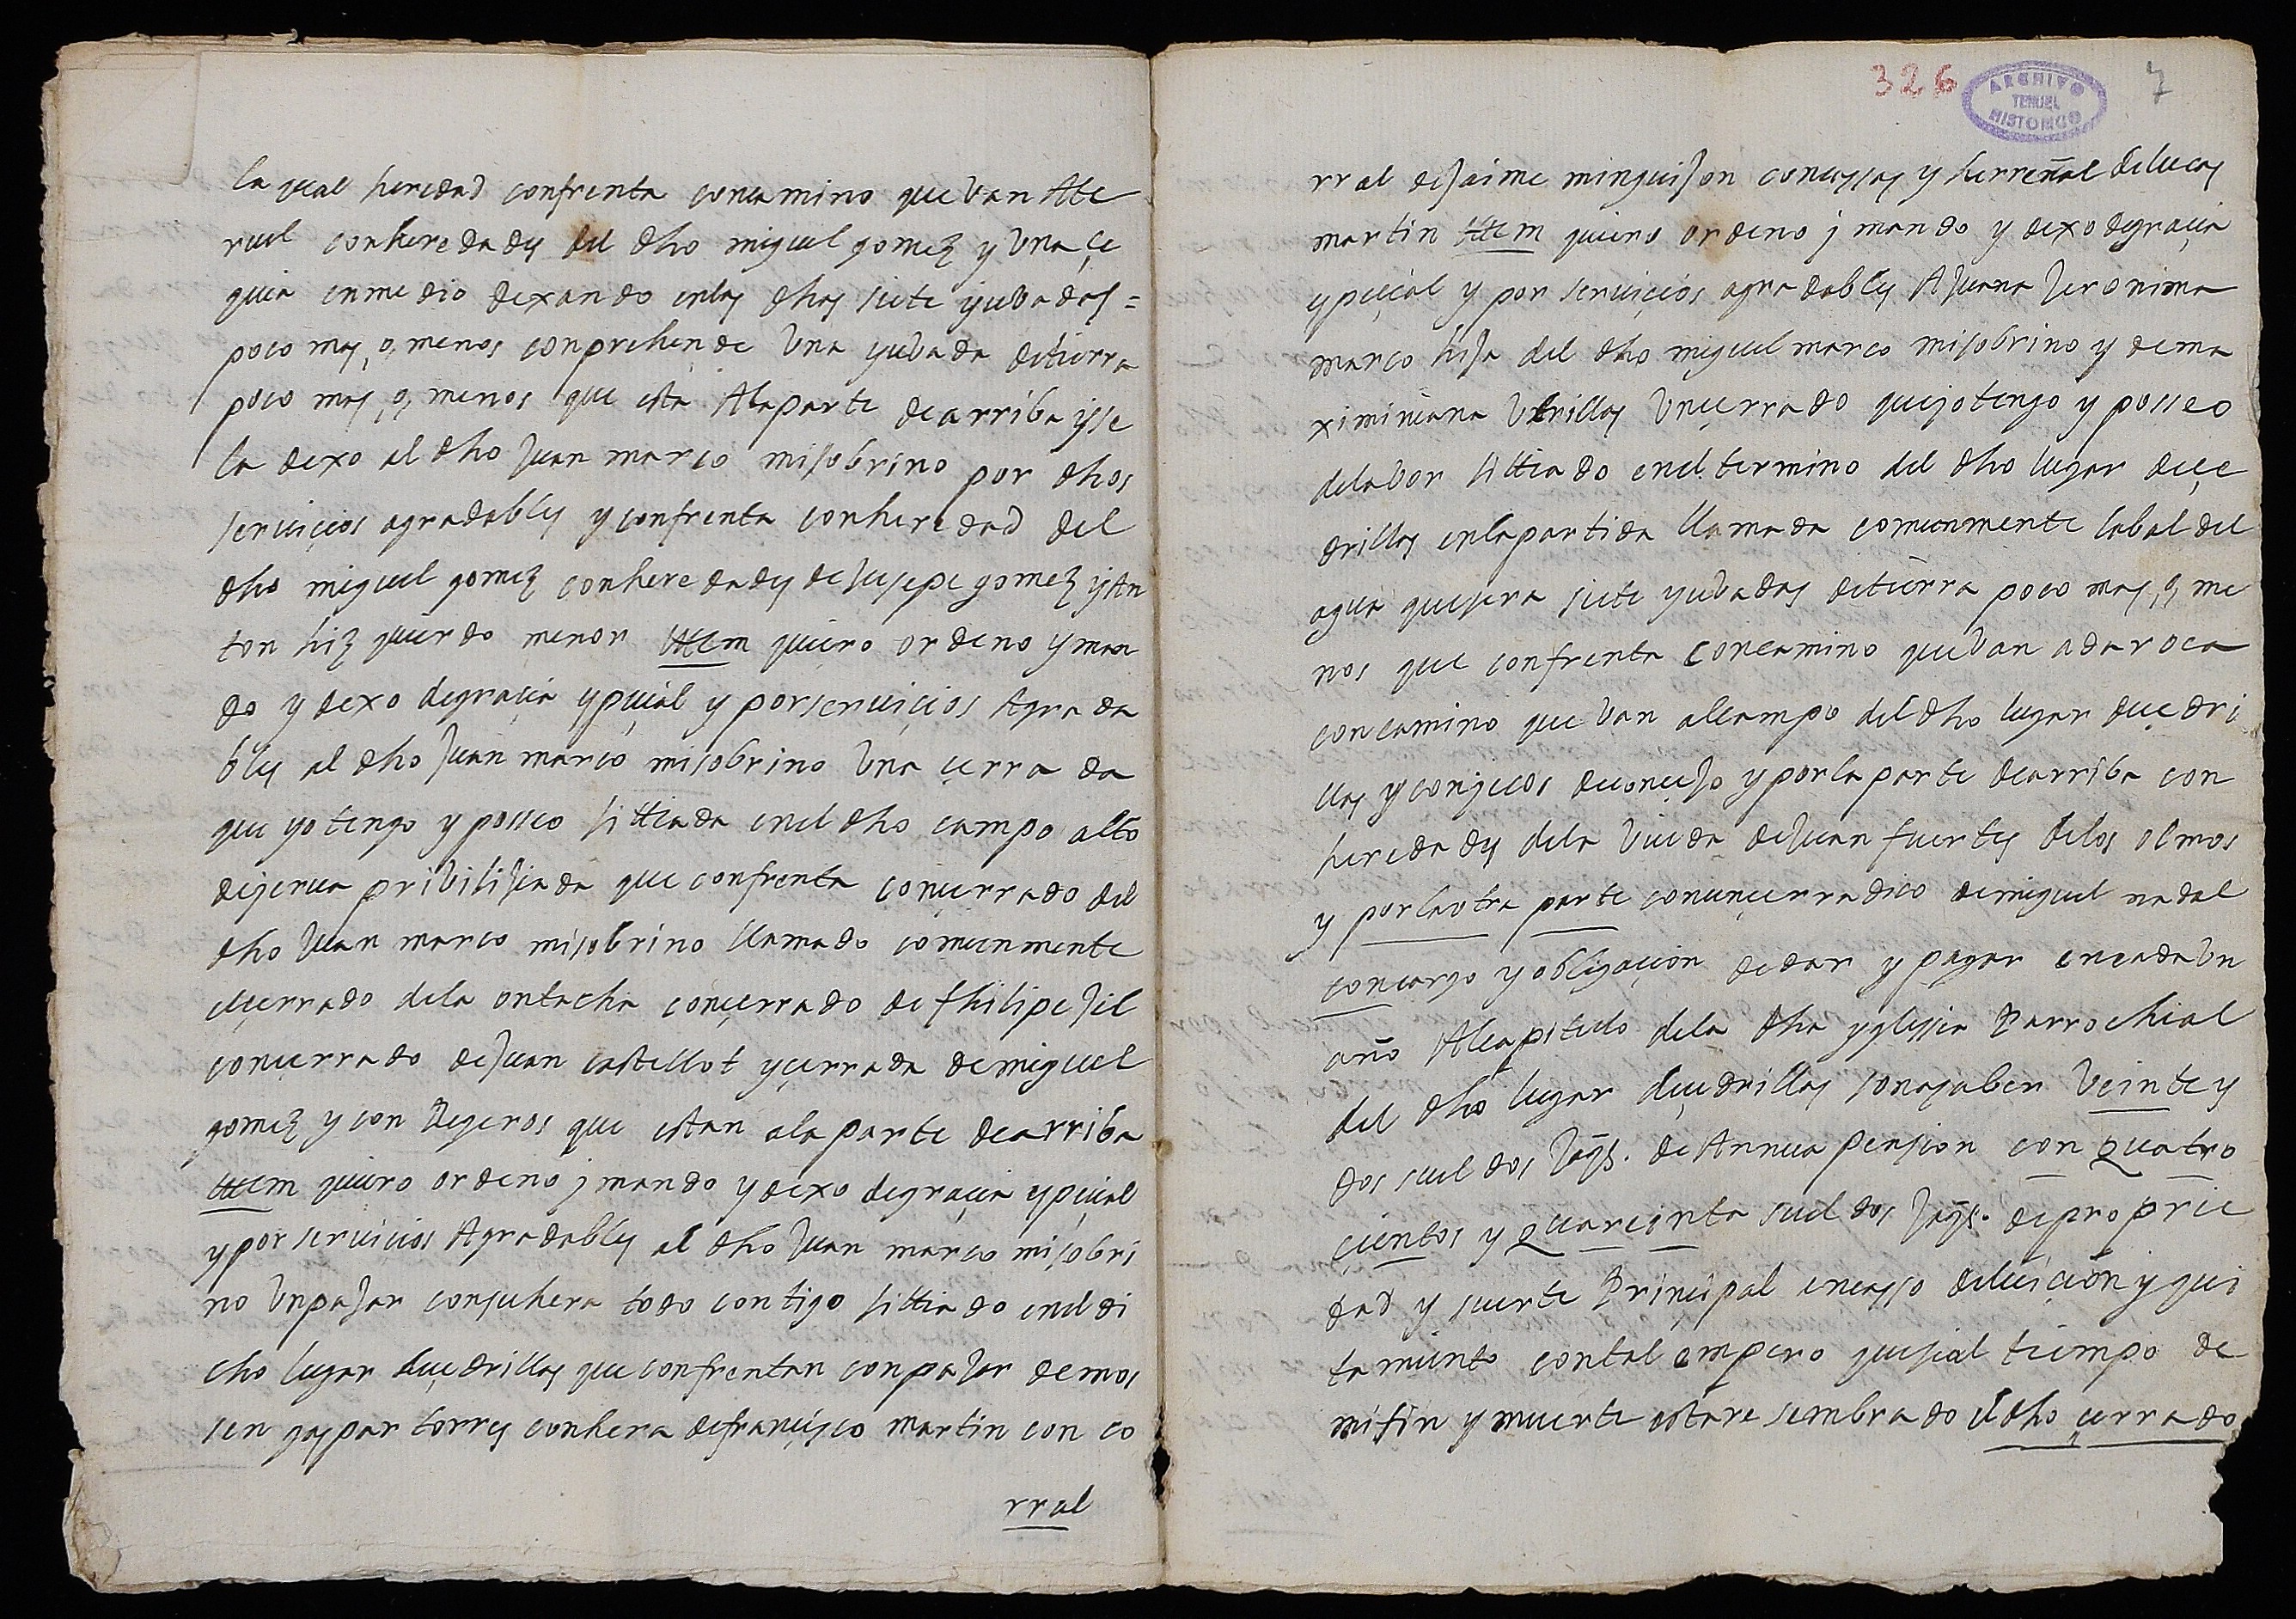 la qual heredad confrenta con camino que van A te
ruel con heredades del dho miguel gomez y Una çe
quia en medio dexando en las dhas siete yubadas =
poco mas, o, menos conprehende Una yubada de tierra
poco mas, o, menos que esta A la parte de arriba y se
la dexo al dho Juan marco mi sobrino por dhos
seruiçios agradables y confrenta con heredad del
dho miguel gomez con heredades de Jusepe gomez y An
ton hizquierdo menor Ittem quiero ordeno y man
do y dexo de graçia espeçial y por seruicios Agrada
bles al dho Juan marco mi sobrino Una çerrada
que yo tengo y posseo sittiada en el dho campo alto
de yerua pribilisiada que confrenta con çerrado del
dho Juan marco mi sobrino llamado comunmente
el çerrado de la ontacha con çerrado de fhilipe Jil
con çerrado de Juan castellot y çerrada de miguel
gomez y con Regeros que estan a la parte de arriba
Ittem quiero ordeno j mando y dexo de graçia espeçial
y por seruicios Agradables al dho Juan marco mi sobri
no Un pajar con su hera todo contigo sittiado en el di
cho lugar de çedrillas que confrentan con pajar de mos
sen gaspar torres con hera de françisco martin con co
rral
326
ARCHIVO
HISTORICO
TERUEL
7
rral de Jaime minguijon con cassas y herreñal de lucas
martin Ittem quiero ordeno j mando y dexo de graçia
espeçial y por seruiçios agradables A Juana Jeronima
marco hija del dho miguel marco mi sobrino y de ma
ximiniana Utrillas Un çerrado que yo tengo y posseo
de labor sittiado en el termino del dho lugar de çe
drillas en la partida llamada comunmente la bal del
agua que sera siete yubadas de tierra poco mas, o, me
nos que confrenta con camino que van a daroca
con camino que van al campo del dho lugar de çedri
llas y con jicos de conçejo y por la parte de arriba con
heredades de la Viuda de Juan fuertes de los olmos
y por la otra parte con un çerradico de miguel nadal
con cargo y obligaçion de dar y pagar en cada Un
año Al capitulo de la dha yglessia Parrochial
del dho lugar de çedrillas son a saber Veinte y
dos sueldos Jaqs. de Annua pension con Quatro
çientos y Quareinta sueldos Jaqs. de proprie
dad y suerte Prinçipal en casso de luiçion y qui
tamiento con tal empero que si al tiempo de
mi fin y muerte estare sembrado el dho çerrado